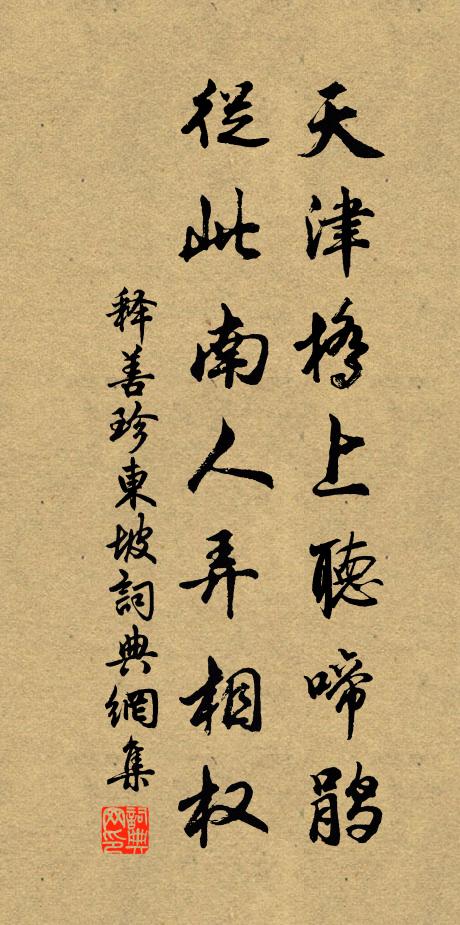 天津橋上聽啼鹃
從此南人弄相权
释善珍東坡詞典網集
詞典网印